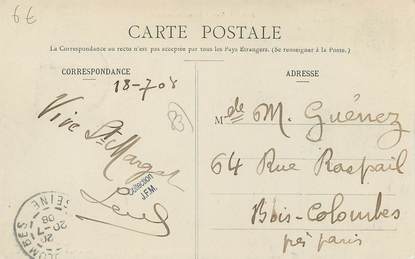 6€
CARTE POSTALE
La Correspondance au recto n'est pas acceptée par tous les Pays Etrangers. (Se renseigner à la Poste.)
CORRESPONDANCE
18-7-08
Vive St Margat
Collection
J.F.M.
83
ADRESSE
Mde M. Guénez
64 Rue Raspail
Bois-Colombes
près paris
MBES
20-7
08
SEINE